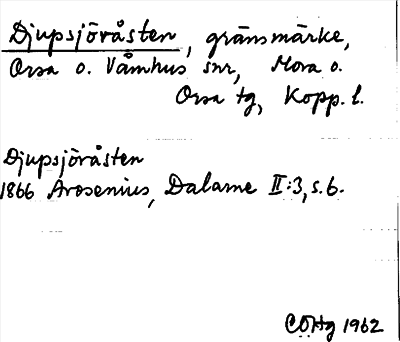 Djupsjöråsten, gränsmärke,
Orsa o. Våmhus snr, Mora o.
Orsa tg, Kopp. l.
Djupsjöråsten
1866 Arosenius, Dalarne II:3, s. 6.
COHg 1962